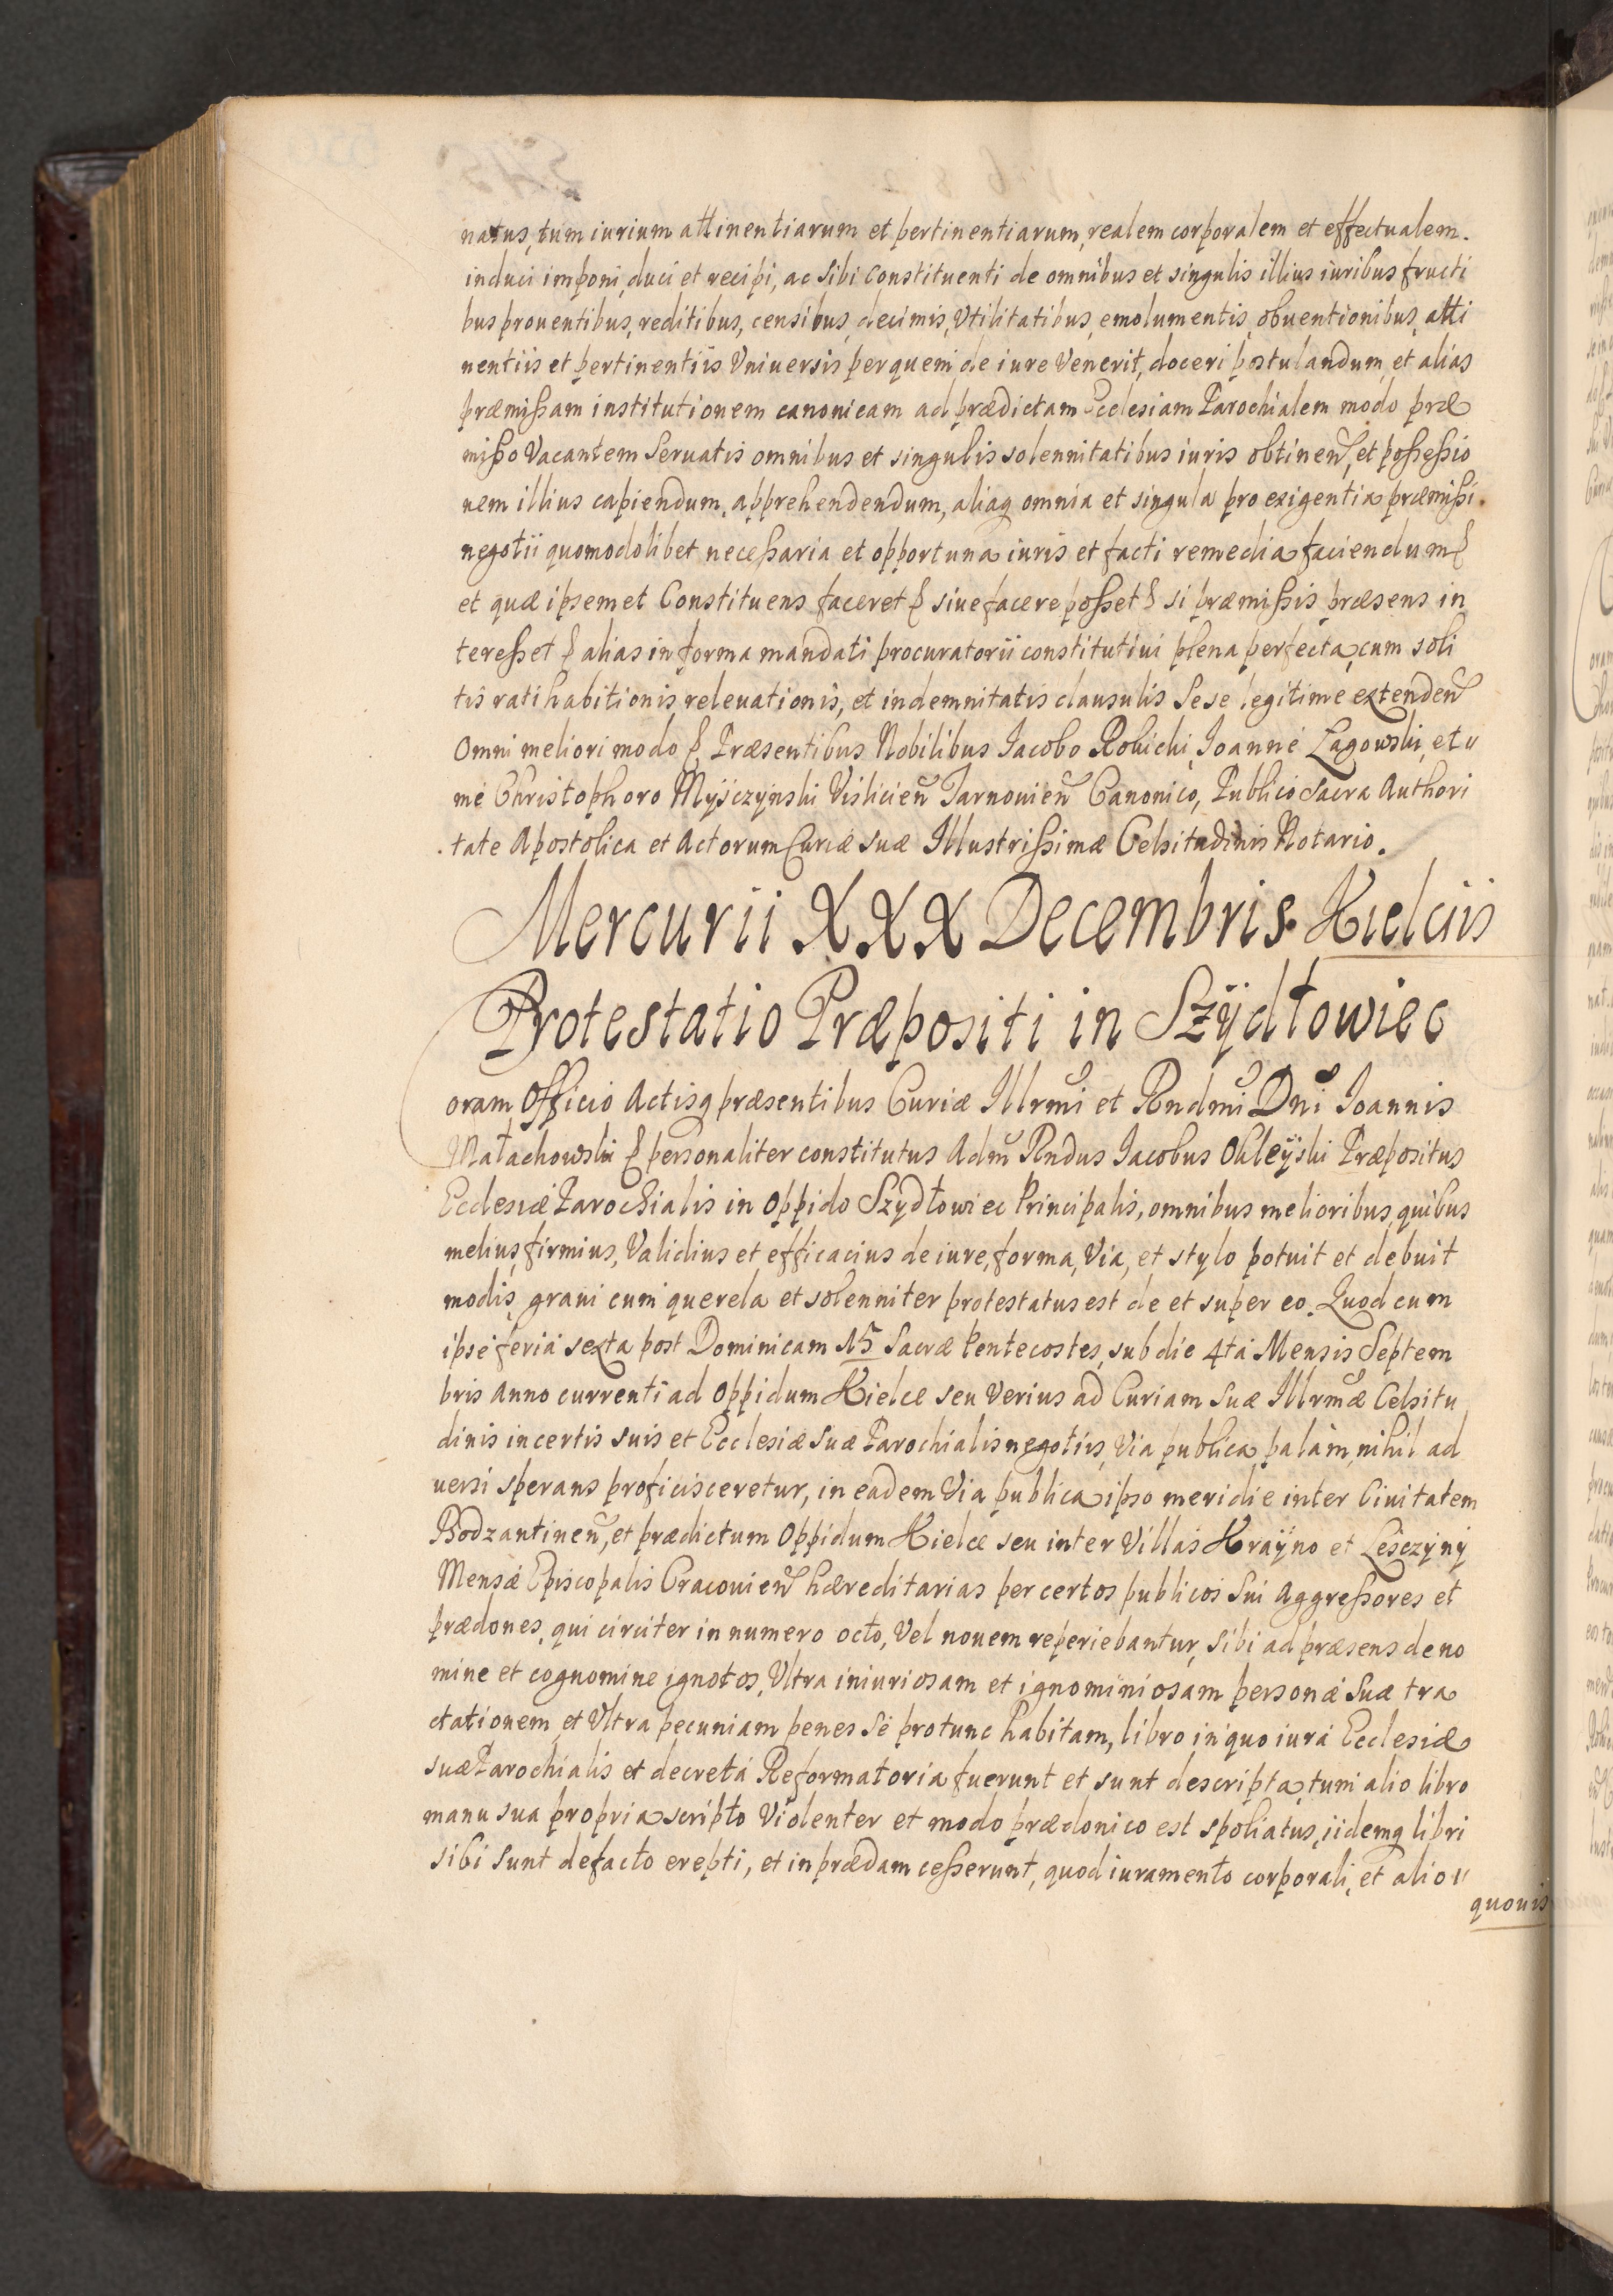 natus, tum iurium attinentiarum et pertinentiarum, realem corporalem et effectualem.
induci imponi, duci et recipi, ac sibi Constituenti de omnibus et singulis illius iuribus fructi
bus prouentibus, reditibus, censibus, decimis, Vtilitatibus, emolumentis, obuentionibus, atti
nentiis et pertinentiis Vniuersis per quem de iure Venerit, doceri postulandum, et alias
præmissam institutionem canonicam ad prædictam Ecclesiam Parochialem modo præ
misso Vacantem Seruatis omnibus et singulis solennitatibus iuris obtinen̄, et possessio
nem illius capiendum, apprehendendum, aliaq omnia et singula pro exigentia præmissi
negotii quomodolibet necessaria et opportuna iuris et facti remedia faciendum &
et quæ ipsemet Constituens faceret & siue facere posset & si præmissis præsens in
teresset & alias in forma mandati procuratorii constitutiui plena perfecta, cum soli
tis ratihabitionis, releuationis, et indemnitatis clausulis Sese legitime extenden̄
Omni meliori modo &. Præsentibus Nobilibus Iacobo Robicki, Joanne Łagowski, et
me Christophoro Myśczyński Visliciēn Tarnouiēn Canonico, Publico Sacra Authori
tate Apostolica et Actorum Curiæ suæ Illustrissimæ Celsitudinis Notario.
Mercurii XXX Decembris. Kielciis
Protestatio Præpositi in Szÿdłowiec
Coram Officio Actisq præsentibus Curiæ Illrmi et Rndmi Dni Ioannis
Małachowski & personaliter constitutus Adm̄ Rndus Iacobus Okleÿski Præpositus
Ecclesiæ Parochialis in Oppido Szydłowiec Principalis, omnibus melioribus, quibus
melius, firmius, Validius et efficacius de iure, forma, Via, et stylo potuit et debuit
modis, graui cum querela et solenniter protestatus est de et super eo. Quod cum
ipse feria sexta post Dominicam 15 Sacræ Pentecostes, sub die 4ta Mensis Septem
bris Anno currenti ad Oppidum Kielce seu Verius ad Curiam Suæ Illrmæ Celsitu
dinis in certis suis et Ecclesiæ suæ Parochialis negotiis, Via publica palàm, nihil ad
uersi sperans proficisceretur, in eadem Via publica ipso meridie inter Ciuitatem
Bodzantinen̄, et prædictum Oppidum Kielce seu inter Villas Kraÿno et Lesczyny
Mensæ Episcopalis Cracouien̄ hæreditarias per certos publicos Sui Aggressores et
prædones, qui circiter in numero octo, Vel nouem reperiebantur, sibi ad præsens de no
mine et cognomine ignotos, Vltra iniuriosam et ignominiosam personæ Suæ tra
ctationem, et Vltra pecuniam penes Se pro tunc habitam, libro in quo iura Ecclesiæ
suæ Parochialis et decreta Reformatoria fuerunt et sunt descripta, tum alio libro
manu sua propria scripto Violenter et modo prædonico est spoliatus, iidemq libri
sibi sunt de facto erepti, et in prædam cesserunt, quod iuramento corporali, et alio
quouis